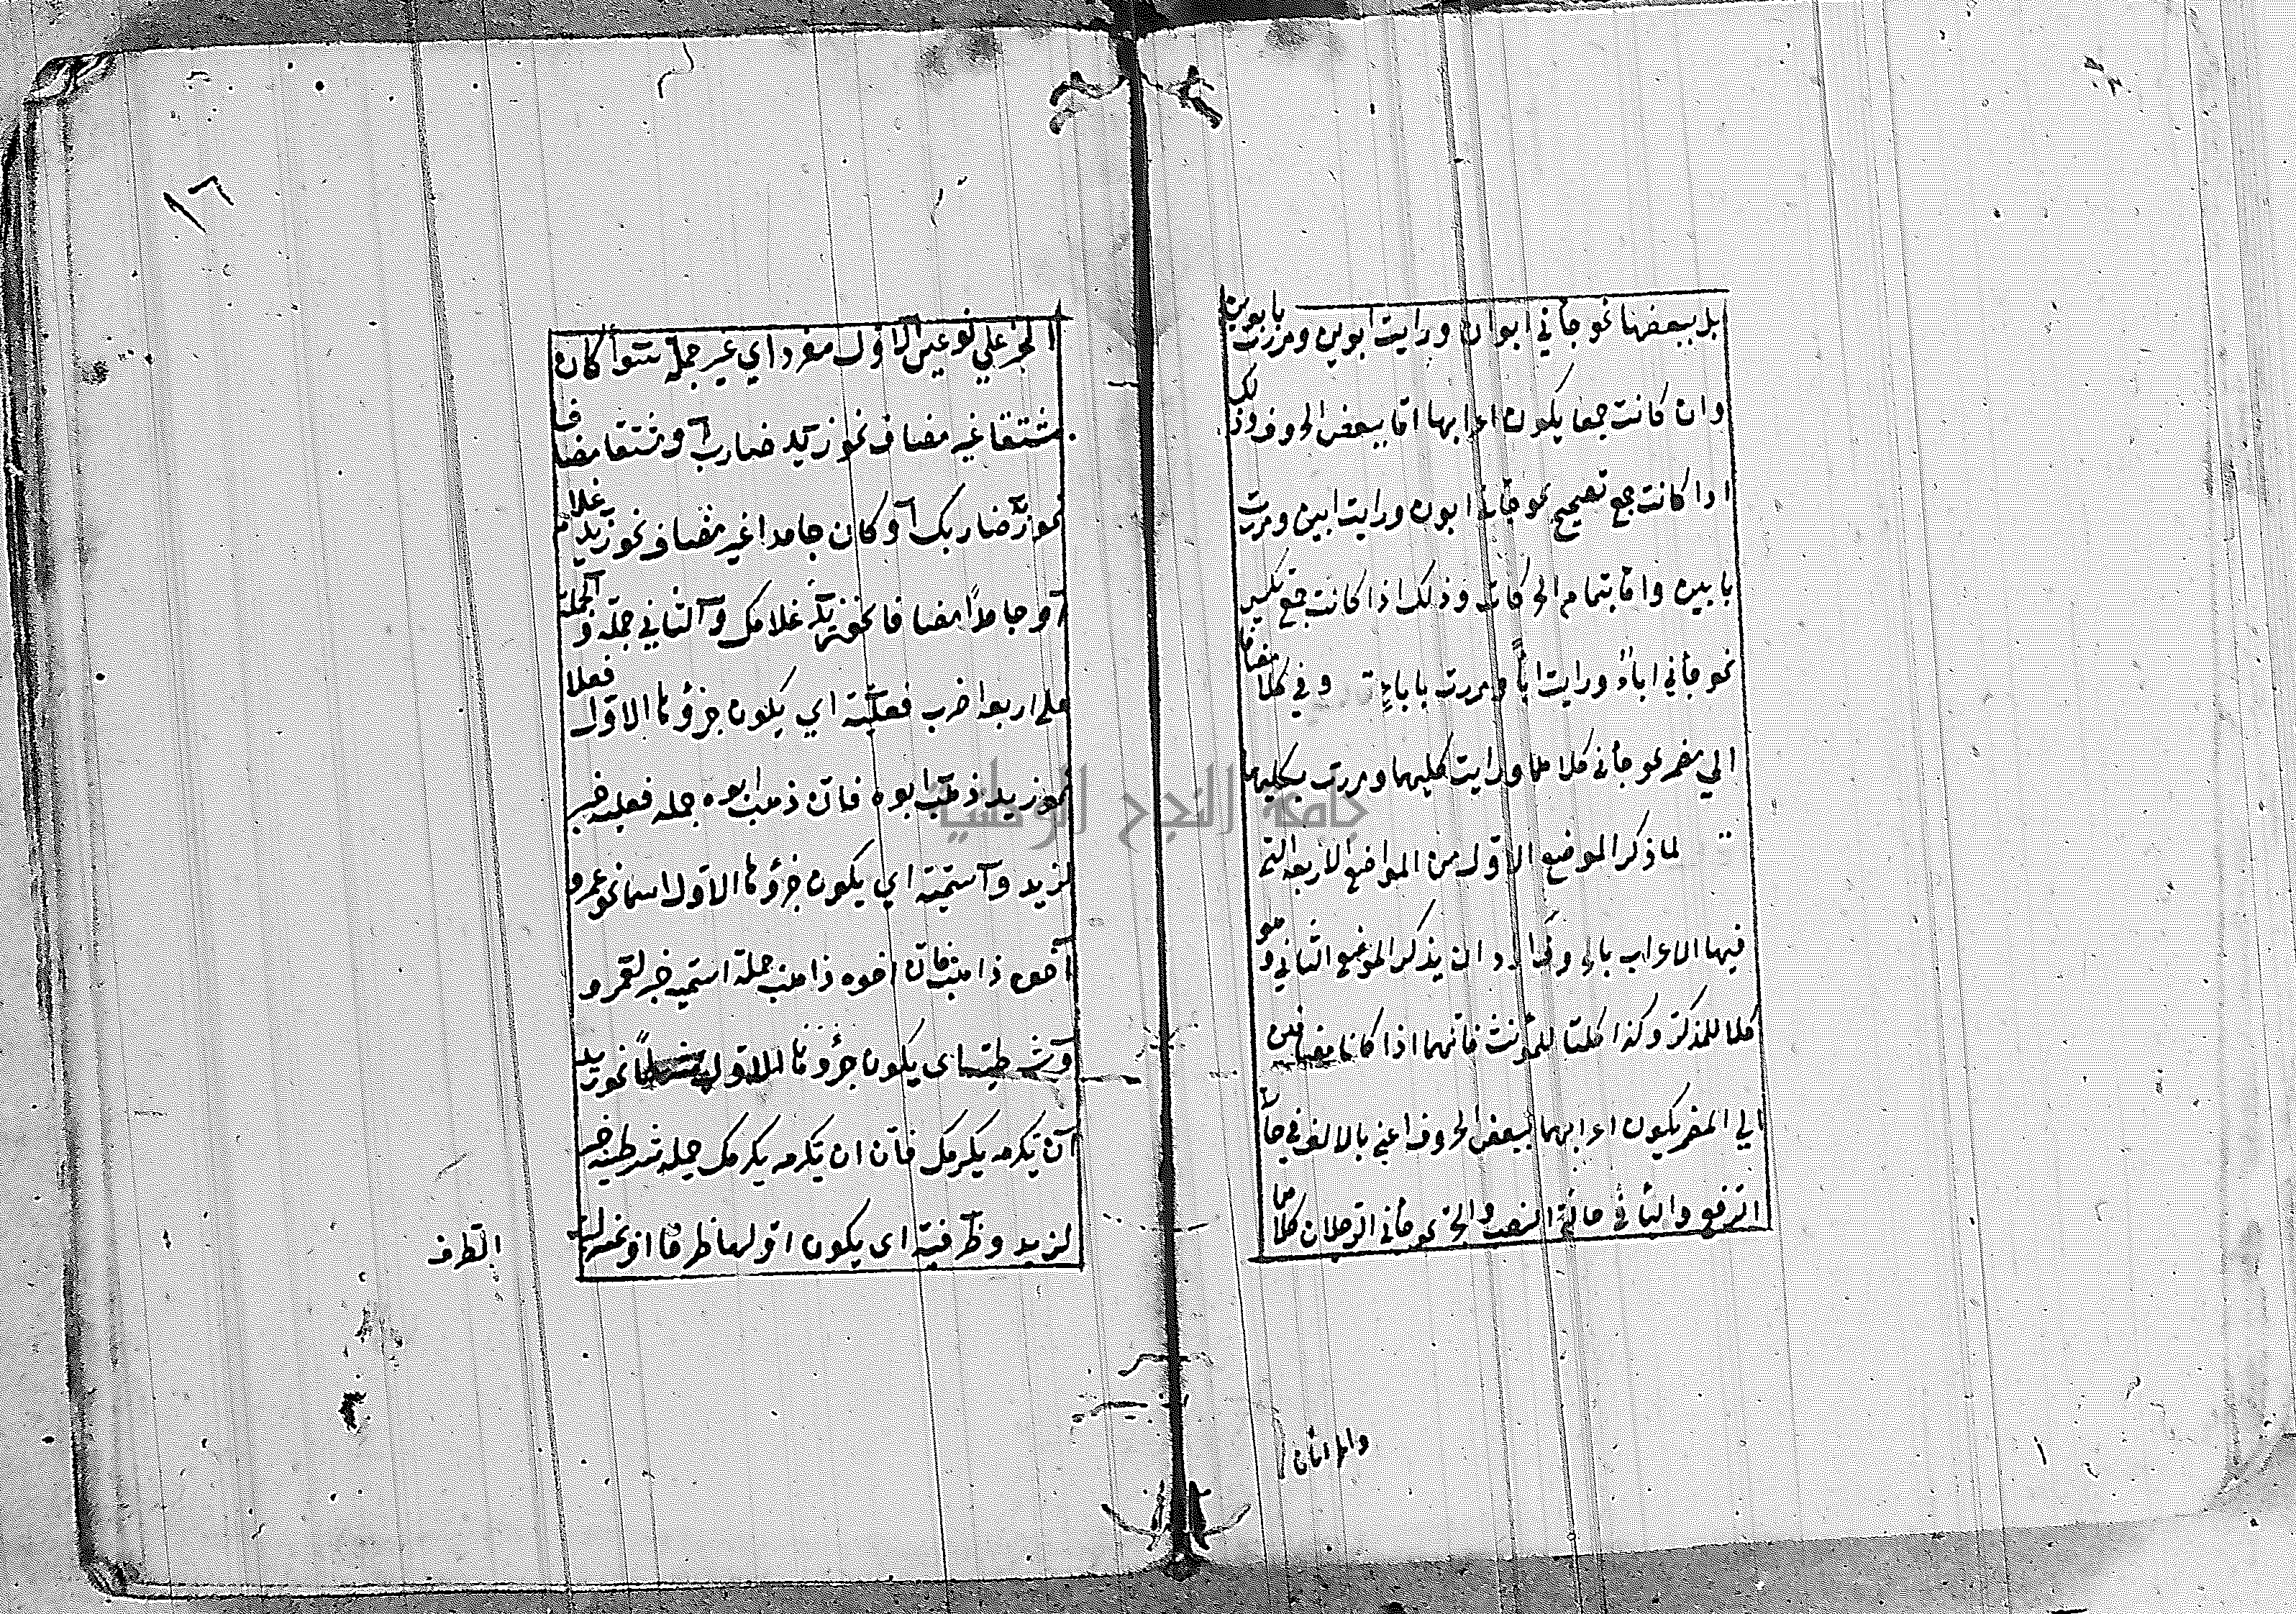 بل ببعضها نحو جأني ابوان ورايت ابوين ومررت بابوين
وان كانت جمعا يكون اعرابها امّا ببعض الحروف وذلك
اذا كانت جمع تصحيح نحو جأني ابون ورايت ابين ومررت
بابين وامّا بتمام الحركات وذلك اذا كانت جمع تكسير
نحو جأني اباءٌ ورايت اباً ومررت باباءٍ وفي كلا مضافا
الي مضمر نحو جأني كلاهما ورايت كليهما ومررت بكليهما
لما ذكر الموضع الاوّل من المواضع الاربعة التي
فيها الاعراب بالحرف اراد ان يذكر الموضع الثاني وهو
كلا للمذكر وكذا كلتا للمؤنث فانّهما اذا كانا مضافين
الي المضمر يكون اعرابهما ببعض الحروف اعني بالالف في حالة
الرفع والياء في حالة النصب والجر نحو جأني الرجلان كلاهما
والمرأتان
١٦
الخبر علي نوعين الاوّل مفرد اي غير جملة سواء كان
مشتقا غير مضاف نحو زيد ضارب او مشتقا مضافا
نحو زيد ضاربك او كان جامدا غير مضاف نحو زيد غلام
او جامداً مضافا نحو زيد غلامك والثاني جملة والجملة
علي اربعة اضرب فعليّة اي يكون جزؤها الاوّل فعلا
نحو زيد ذهب ابوه فانّ ذهب ابوه جملة فعلية خبر
لزيد واسميّة اي يكون جزؤها الاوّل اسما نحو عمرو
اخوه ذاهب فانّ اخوه ذاهب جملة اسمية خبر لعمرو
وشرطيّة اي يكون جزؤها الاوّل شرطاً نحو زيد
ان تكرمه يكرمك فانّ ان تكرمه يكرمك جملة شرطية خبر
لزيد وظرفيّة اي يكون اوّلها ظرفا
الظرف
جامعة النجاح الوطنية